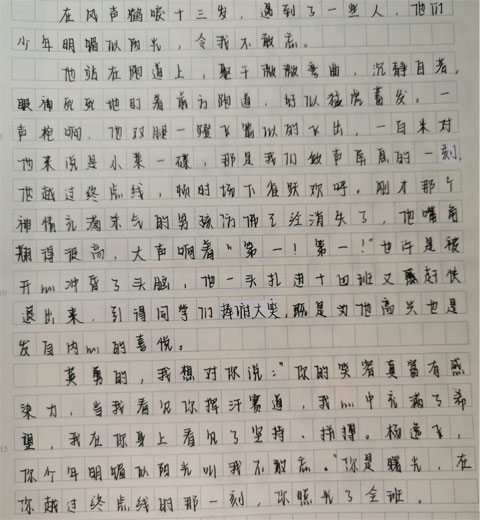 在风声鹤唳十三发，遇到了一些人，他们
少年明媚似阳光，令我不敢忘。
他站在跑道上，双手微微弯曲，沉静自若，
眼神死死地盯着前方跑道，好似猛虎蓄发。一
声枪响，他双腿一蹬飞箭似的飞出，一百米对
他来说是小菜一碟，那是我们敛声屏息的一刻，
他越过终点线，顿时场下雀跃欢呼，刚才那个
神情充满杀气的男孩仿佛已经消失了，他嘴角
翘得很高，大声喊着“第一！第一！”也许是被
开心冲昏了头脑，他一头扎进十四班又赶快
退出来，引得同学们捧腹大笑，既是为他高兴也是
发自内心的喜悦。
英勇的，我想对你说：“你的笑容真富有感
染力，当我看见你挥汗赛道，我心中充满了希
望，我在你身上看见了坚持、拼搏。杨逸飞，
你少年明媚似阳光叫我不敢忘。”你是曙光，在
你越过终点线的那一刻，你照亮了全班。